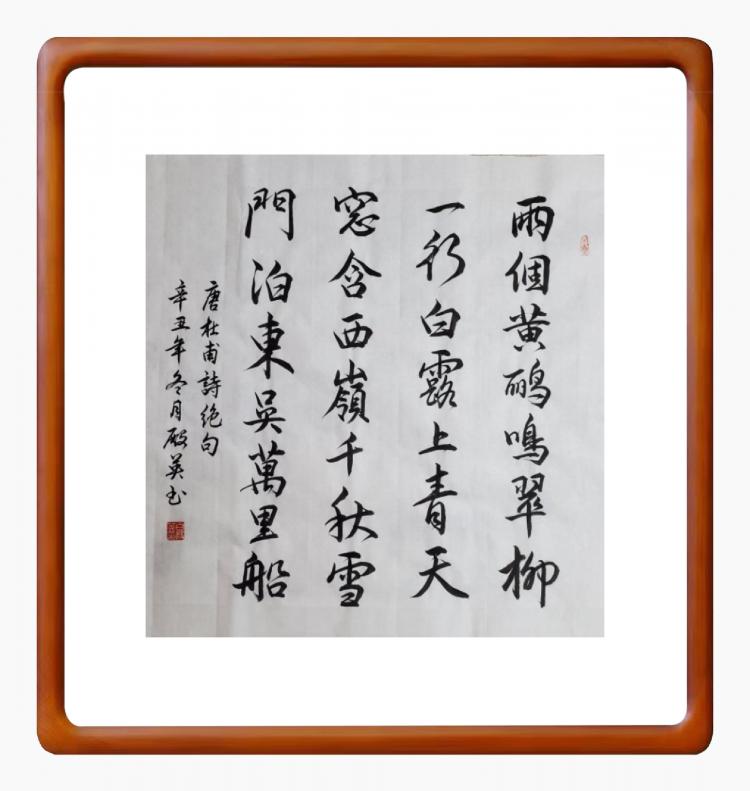 兩個黄鸝鳴翠柳
一行白露上青天
窓含西嶺千秋雪
門泊東吳萬里船
唐杜甫詩絶句
辛丑年冬月英书